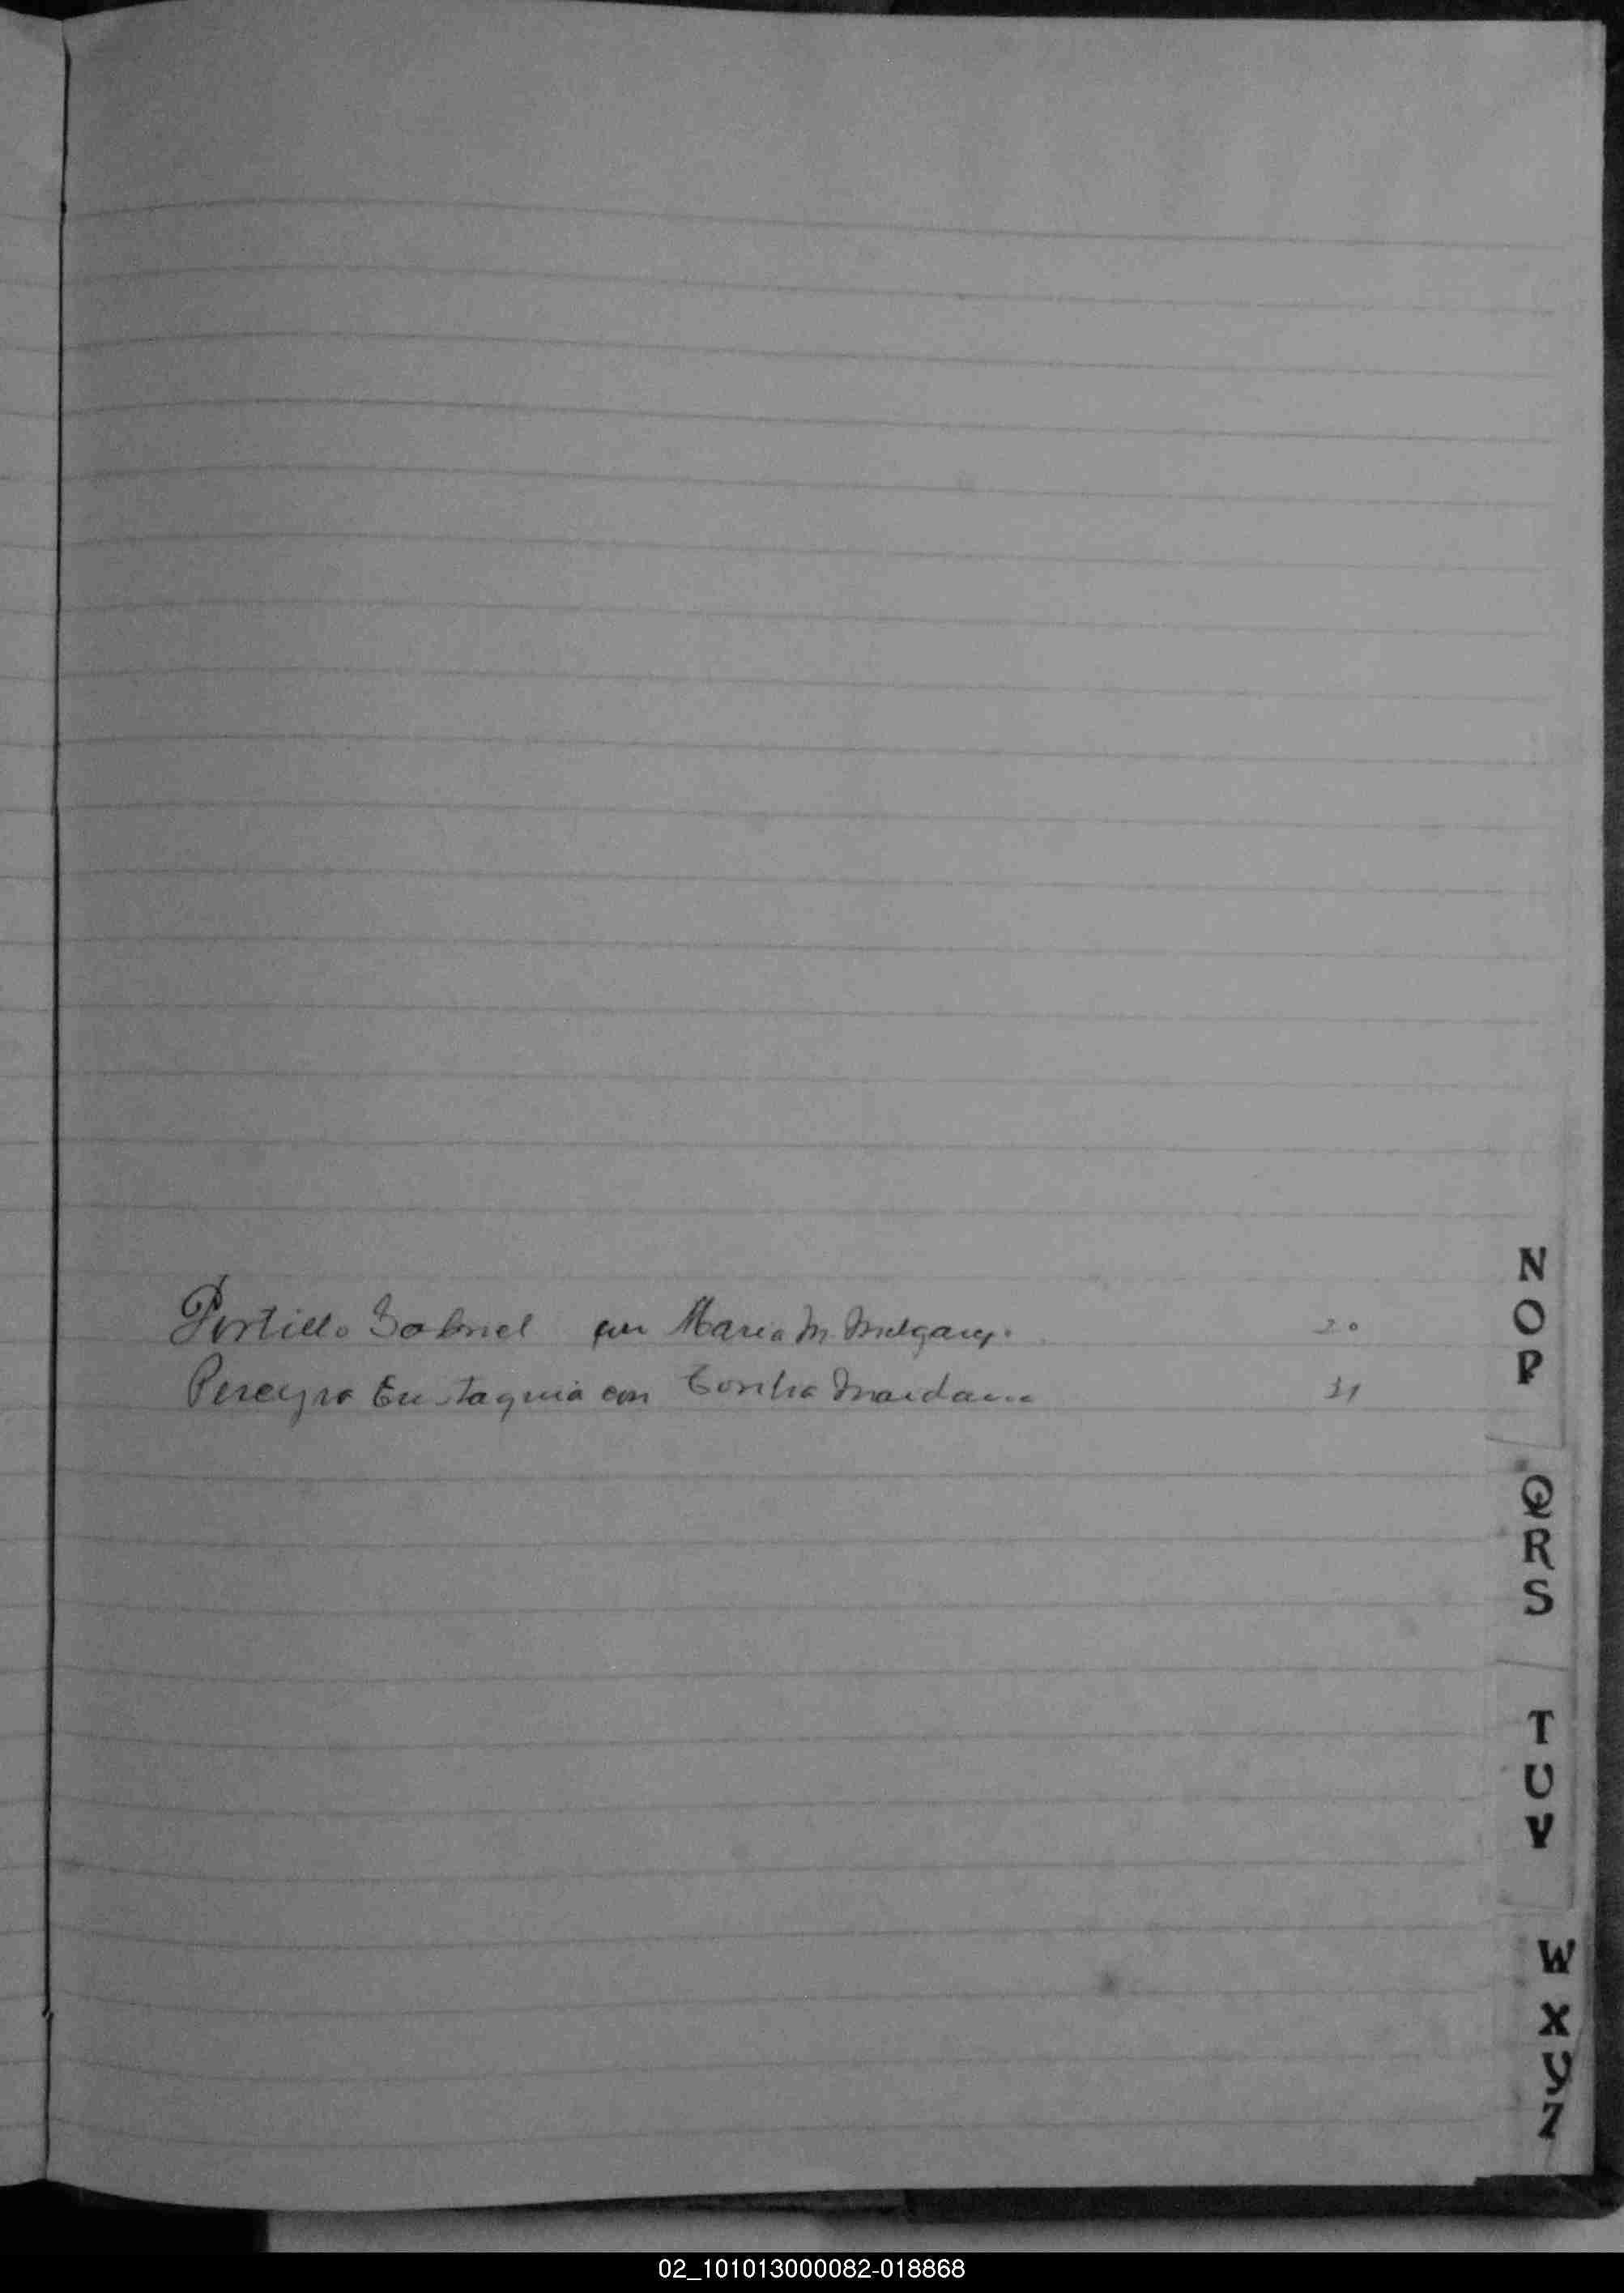 Portillo Gabriel con Maria M. Melgarejo 20
Pereyra Eustaquia con Maidana 31
N
O
P
Q
R
S
T
U
V
W
X
Y
Z
02_101013000082-018868